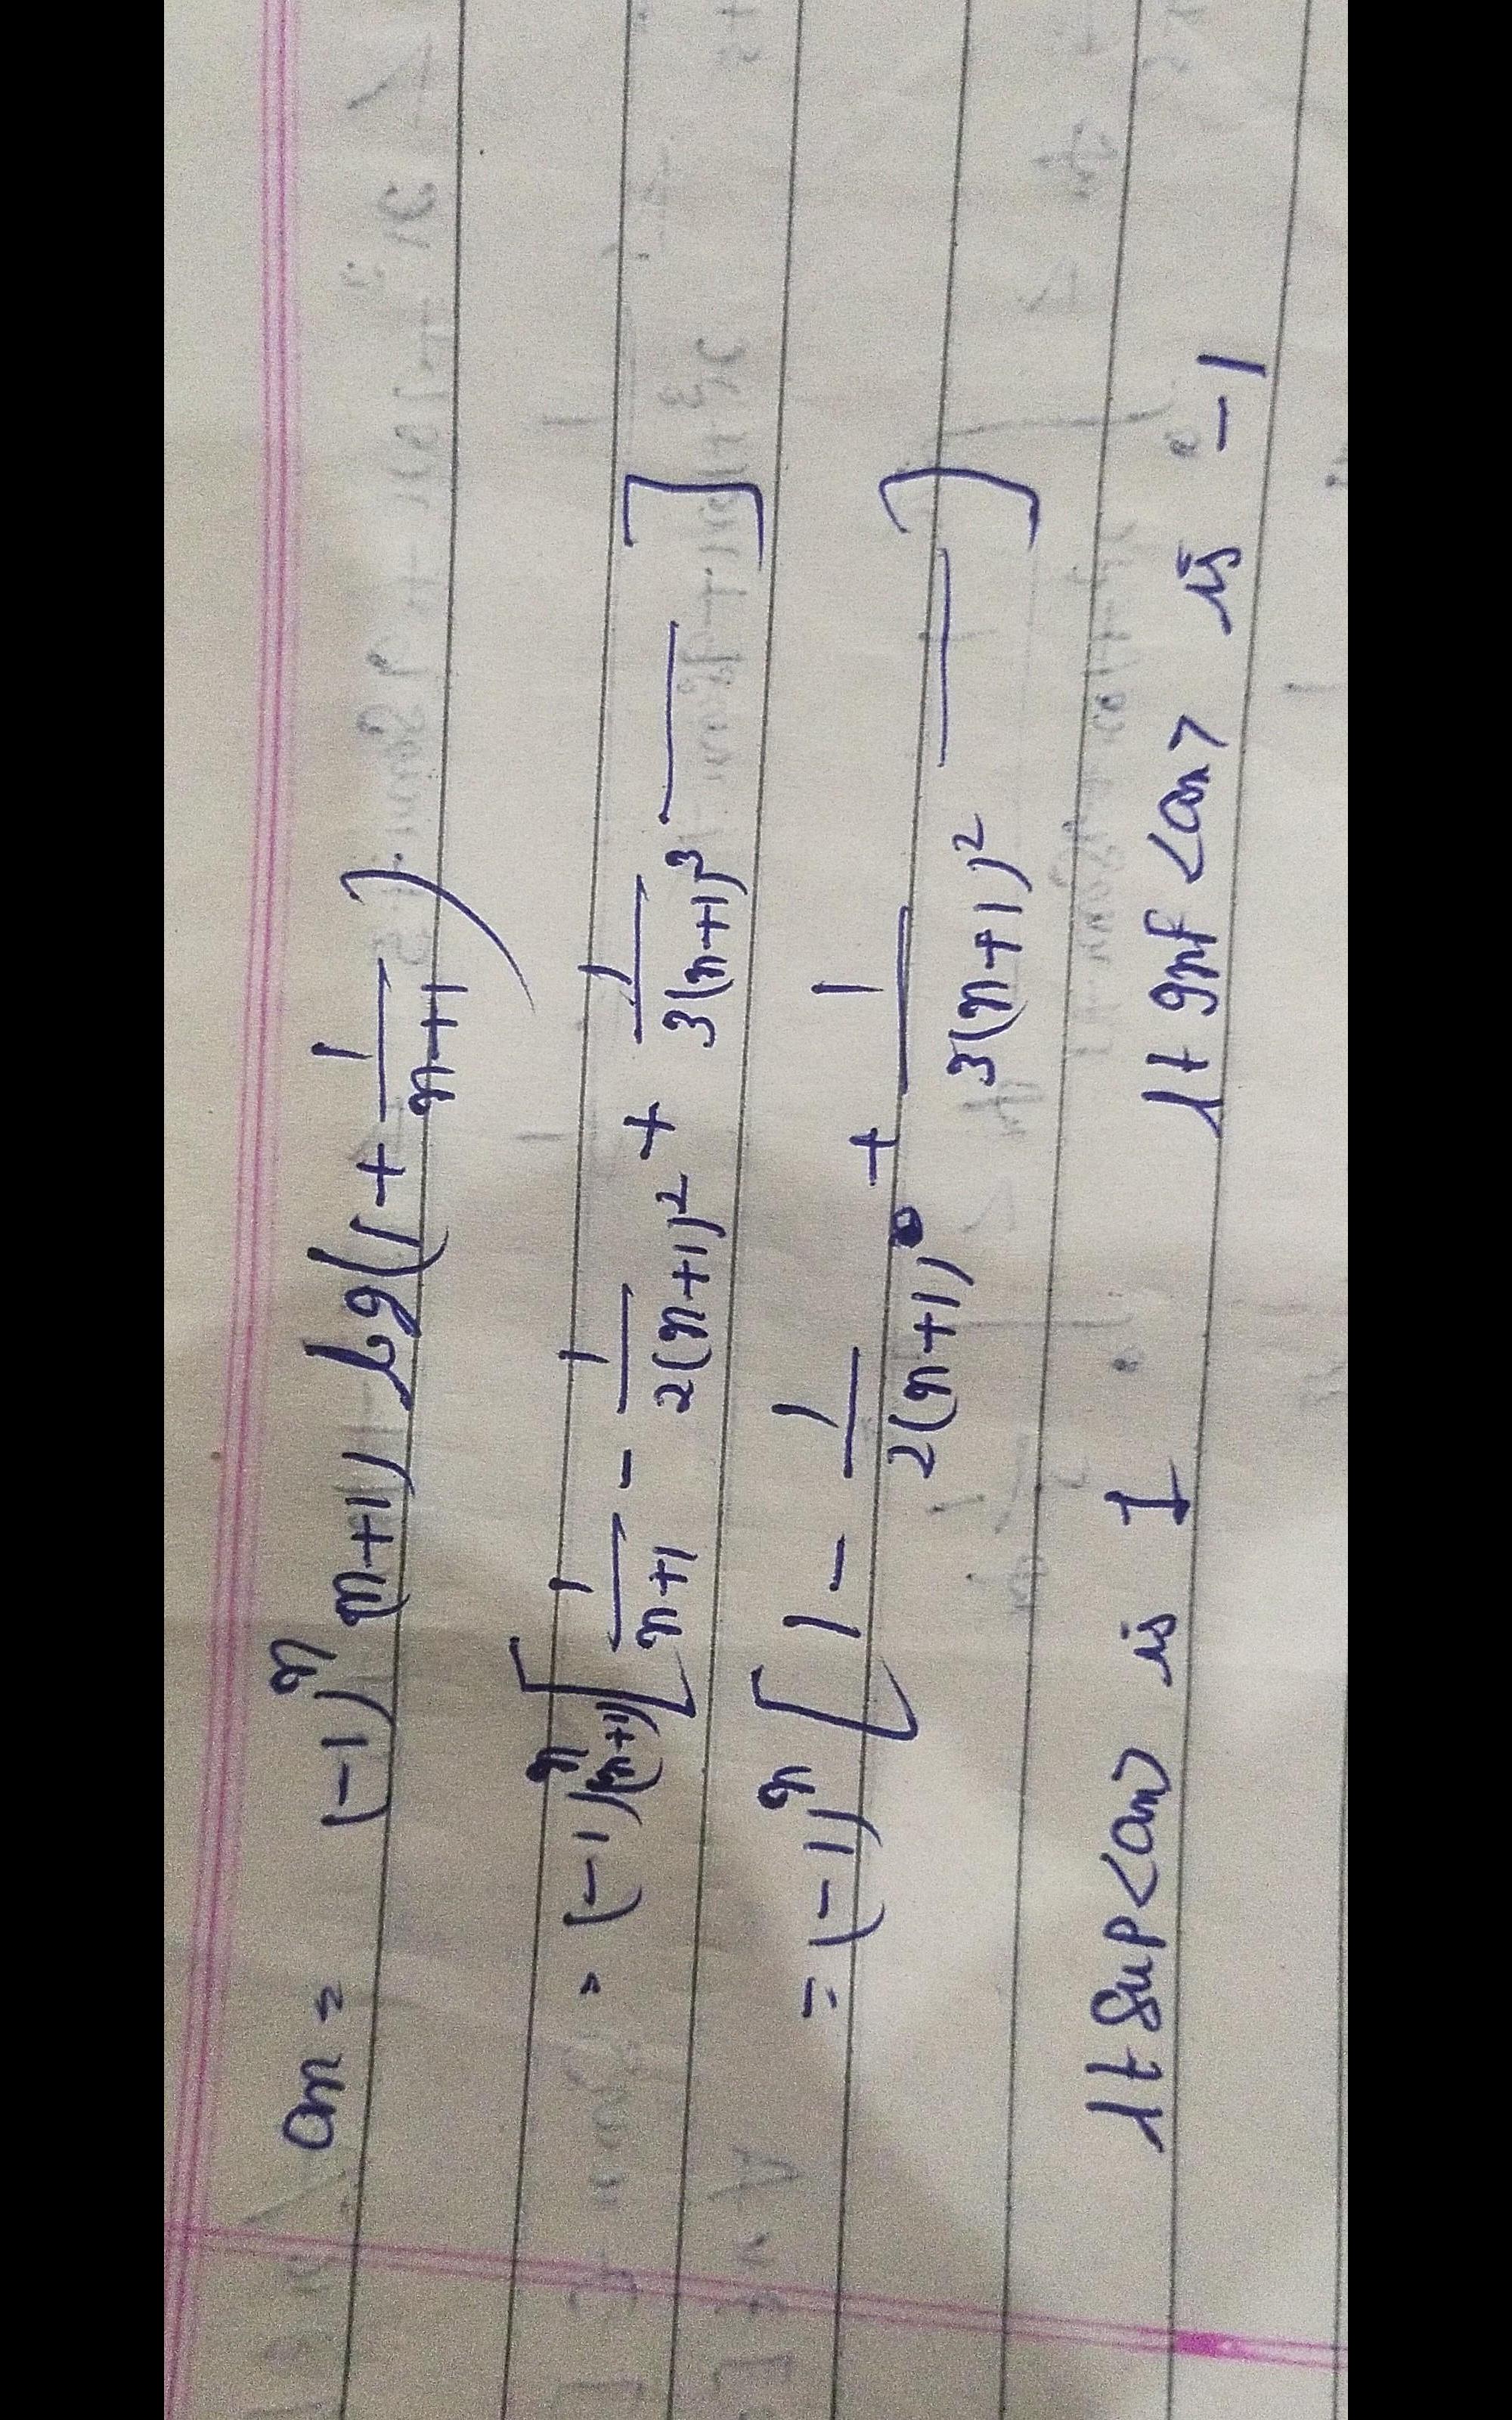 an = (-1)^n (n+1) log(1 + 1/(n+1))
= (-1)^n (n+1) [1/(n+1) - 1/(2(n+1)^2) + 1/(3(n+1)^3) ——]
= (-1)^n [1 - 1/(2(n+1)) + 1/(3(n+1)^2) ——]
lt Sup <an> is 1 lt Inf <an> is -1